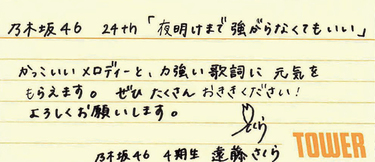 乃木坂46 24th「夜明けまで強がらなくてもいい」
かっこいいメロディーと、力強い歌詞に 元気を
もらえます。 ぜひ たくさん おききください!
よろしくお願いします。
さくら
TOWER
乃木坂46 4期生 遠藤さくら